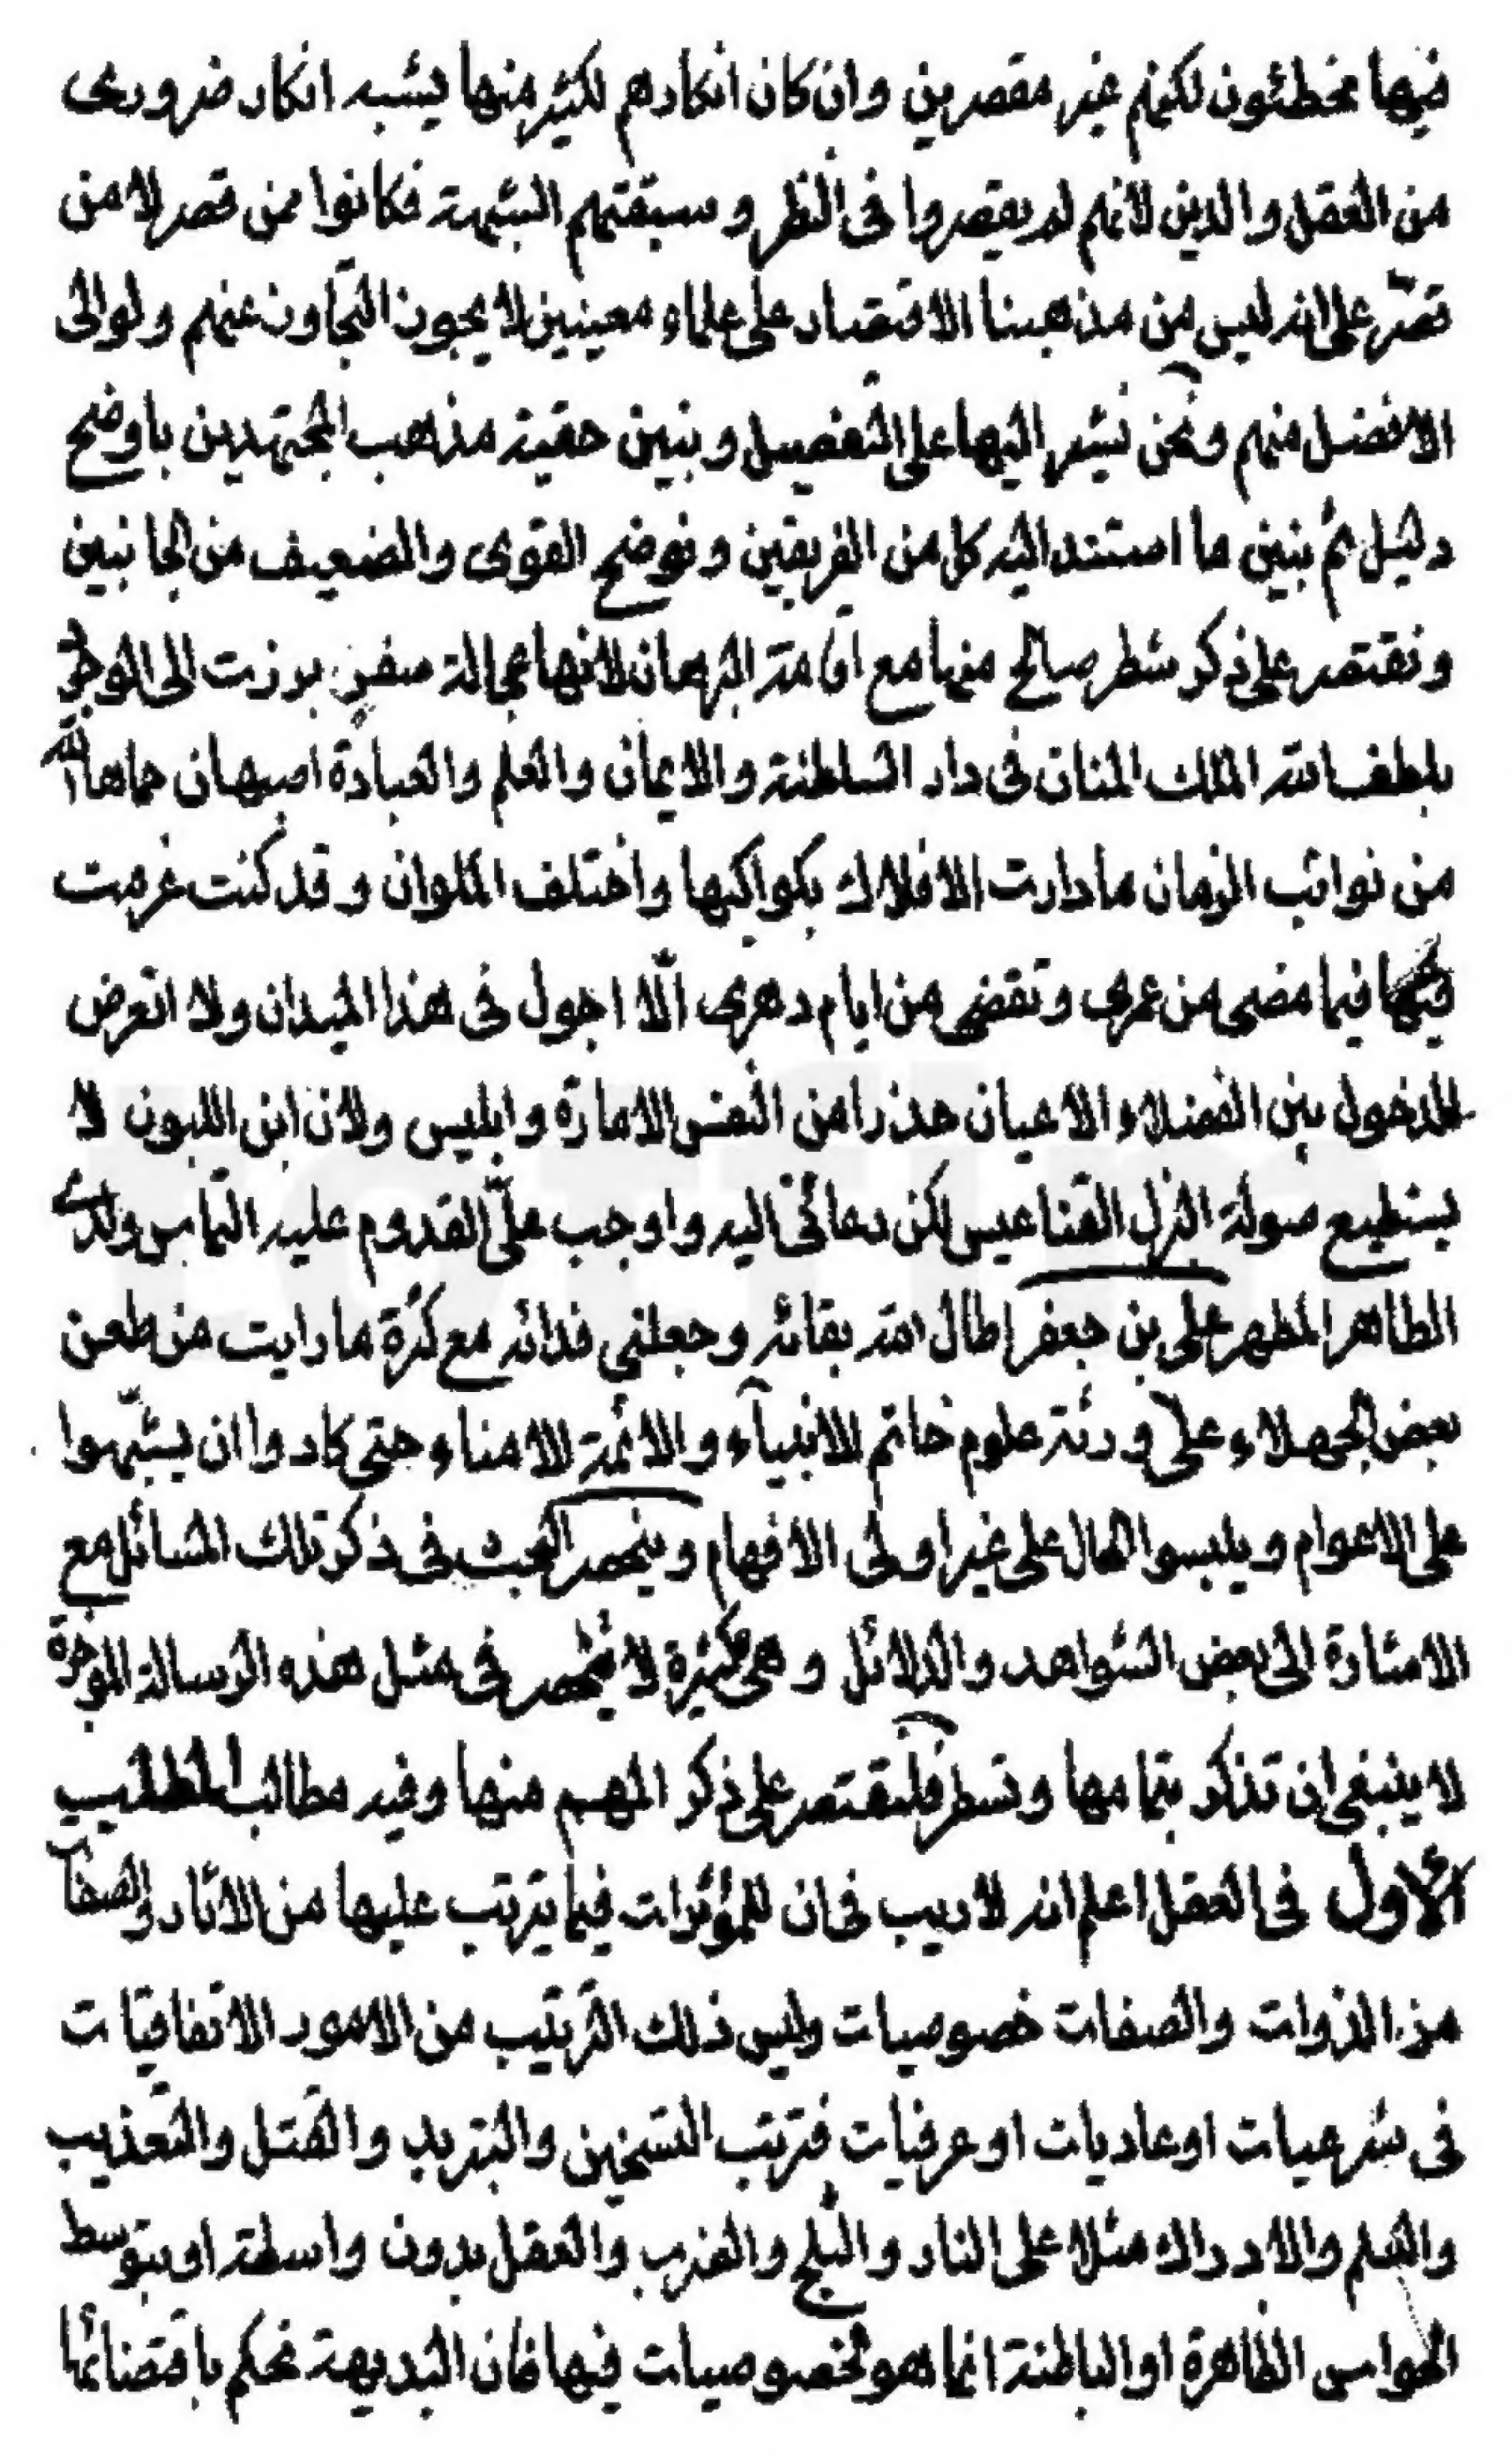 فيها مخطئون لكنهم غير مقصرين وان كان انكارهم لكثير منها يشبه انكار ضروري
من العقل والدين لانهم لم يقصروا في النظر وسبقتهم الشبهة فكانوا ممن قصر لا من
قصّر على انه ليس من مذهبنا الاقتصار على علماء معينين لا يجوز التجاوز عنهم ولو الى
الافضل منهم ونحن نشير اليها على التفصيل ونبين حقية مذهب المجتهدين باوضح
دليل ثم نبين ما استند اليه كل من الفريقين ونوضح القوي والضعيف من الجانبين
ونقتصر على ذكر شطر صالح منها مع اقامة البرهان لانها عجالة سفر برزت الى الوجود
بلطف الله الملك المنان في دار السلطنة والايمان والعلم والعبادة اصبهان حماها الله
من نوائب الزمان ما دارت الافلاك بكواكبها واختلف الملوان وقد كنت عزمت
فيما مضى من عمري وتقضى من ايام دهري الّا اجول في هذا الميدان ولا اتعرض
للدخول بين الفضلاء الاعيان حذرا من النفس الامارة وابليس ولان ابن اللبون لا
يستطيع صولة البزل القناعيس لكن دعاني اليه واوجب علىّ القدوم عليه التماس ولدي
الطاهر المطهر على بن جعفر اطال الله بقائه وجعلني فدائه مع كثرة ما رايت من طعن
بعض الجهلاء على ورثة علوم خاتم الانبيآء والائمة الامناء حتى كادوا ان يشبّهوا
على الاعوام ويلبسوا الحال على غير اولى الافهام وينحصر البحث في ذكر تلك المسائل مع
الاشارة الى بعض الشواهد والدلائل وهي كثيرة لا تنحصر في مثل هذه الرسالة الموجزة
لا ينبغي ان تذكر بتمامها وتسطر فلنقتصر على ذكر المهم منها وفيه مطالب المطلب
الأول في العقل اعلم انه لا ريب في ان للمؤثرات فيما يترتب عليها من الاثار والصفات
من الذوات والصفات خصوصيات وليس ذلك الترتيب من الامور الاتفاقيات
في شرعيات او عاديات او عرفيات فترتب التسخين والتبريد والقتل والتعذيب
والعلم والادراك مثلا على النار والثلج والضرب والعقل بدون واسطة او بتوسط
الحواس الظاهرة او الباطنة انما هو لخصوصيات فيها فان البديهة تحكم باقتضائها